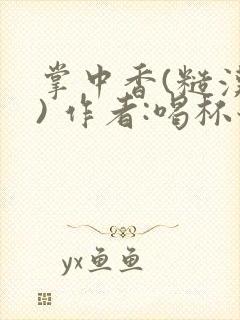 掌中香(糙汉
) 作者:喝杯
yx鱼鱼